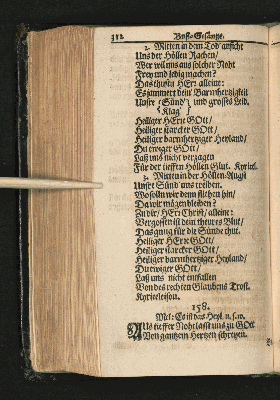 312 Buß-Gesänge.
2. Mitten in dem Tod anficht
Uns der Höllen Rachen/
Wer wil uns aus solcher Noht
Frey und ledig machen?
Das thustu HErr alleine:
Es jammert dein Barmhertzigkeit
Unsre {Sünd / Klag} und grosses Leid.
Heiliger HErre GOtt/
Heiliger starcker GOtt/
Heiliger barmhertziger Heyland/
Du ewiger GOtt/
Laß uns nicht verzagen
Für der tieffen Höllen Glut. Kyriel.
3. Mitten in der Höllen-Angst
Unsre Sünd uns treiben.
Wo solln wir denn fliehen hin/
Da wir mögen bleiben?
Zu dir/ HErr Christ/ alleine:
Vergossen ist dein theures Blut/
Das gnug für die Sünde thut.
Heiliger HErre GOtt/
Heiliger starcker GOtt/
Heiliger barmhertziger Heyland/
Du ewiger GOtt/
Laß uns nicht entfallen
Von des rechten Glaubens Trost.
Kyrieleison.
158.
Mel: Es ist das Heyl. u. s. w.
Aus tieffer Noht lasst uns zu GOtt
Von gantzem Hertzen schreyen.